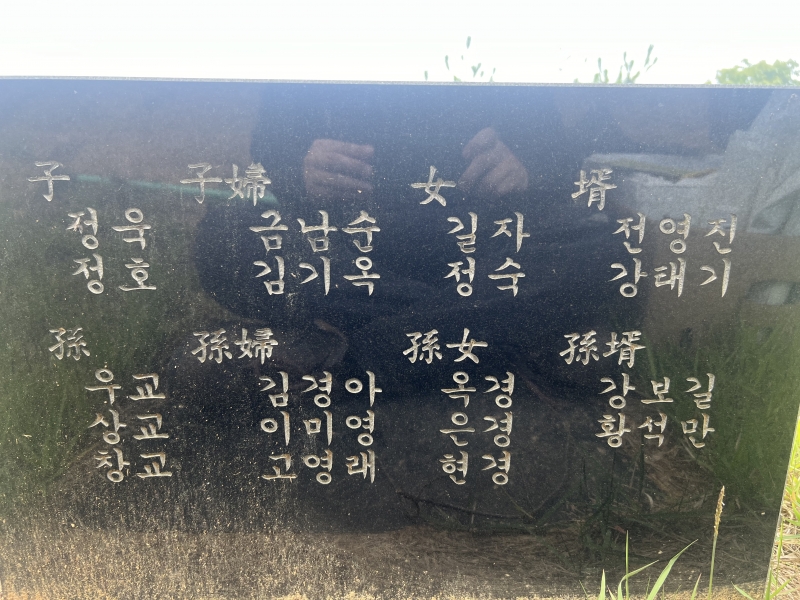 子 子婦 女 壻
정욱 금남순 길자 전영진
정호 김기옥 정숙 강태기
孫 孫婦 孫女 孫壻
우교 김경아 옥경 강보길
상교 이미영 은경 황석만
창교 고영래 현경